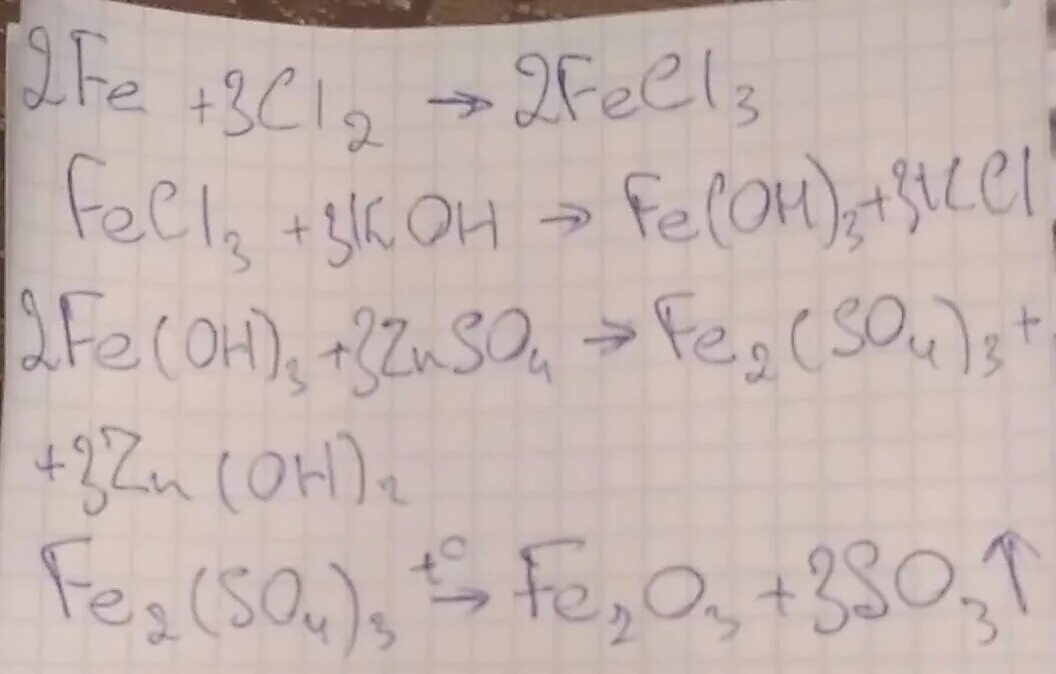 2Fe + 3Cl₂ → 2FeCl₃
FeCl₃ + 3KOH → Fe(OH)₃ + 3KCl
2Fe(OH)₃ + 3ZnSO₄ → Fe₂(SO₄)₃ +
+ 3Zn(OH)₂
Fe₂(SO₄)₃ t° → Fe₂O₃ + 3SO₃↑